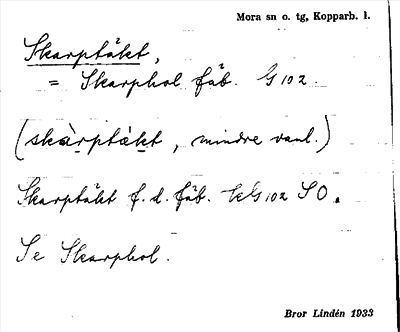 Mora sn o. tg, Kopparb. l.
Skarptäkt,
= Skarphol fäb. G 102.
(skàrptäkt, mindre vanl.)
Skarptäkt f. d. fäb. G 102 SO.
Se Skarphol.
Bror Lindén 1933